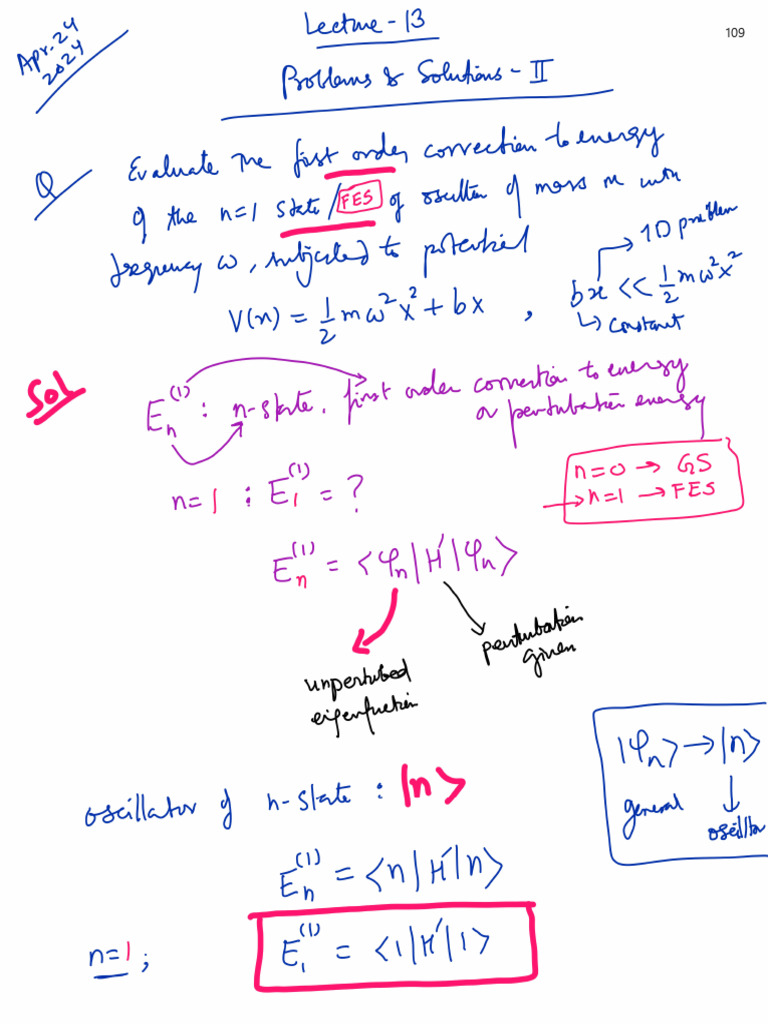 109
Apr-24
2024
Lecture-13
Problems & Solutions-II
Q Evaluate the first order correction to energy
of the n=1 state/FES of oscillator of mass m with
frequency ω, subjected to potential
V(x) = 1/2 mω²x² + bx , bx << 1/2 mω²x²
→ 1D problem
↳ constant
Sol
E_n^(1) : n-state, first order correction to energy
or pertubation energy
n=1 : E_1^(1) = ?
n=0 → GS
→ n=1 → FES
E_n^(1) = <φ_n|H'|φ_n>
unperturbed
eigenfuction
pertubation
given
|φ_n> → |n>
general
↓
oscillator
oscillator of n-state : |n>
E_n^(1) = <n|H'|n>
n=1 ; E_1^(1) = <1|H'|1>